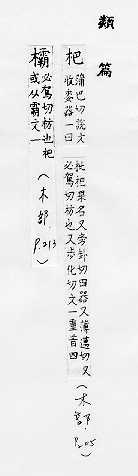 類篇
杷
蒲巴切說文
收麥器一曰
枇杷果名又旁卦切田器又薄邁切又
必駕切枋也又步化切文一重音四
(木部 P.205)
欛
必駕切枋也杷
或从霸文一
(木部 P.213)